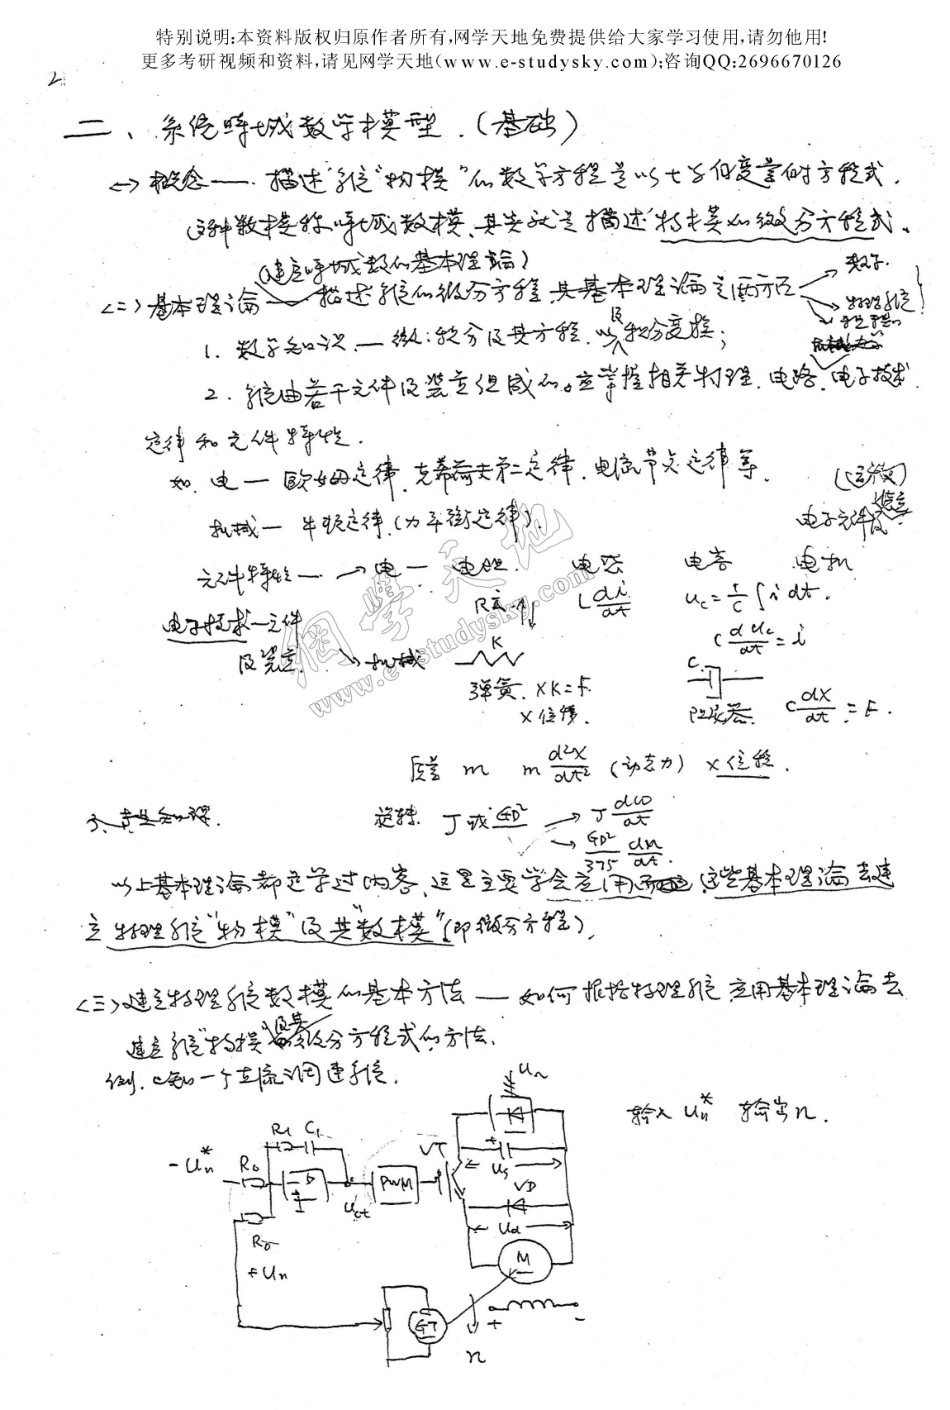 特别说明:本资料版权归原作者所有,网学天地免费提供给大家学习使用,请勿他用!
更多考研视频和资料,请见网学天地(www.e-studysky.com);咨询QQ:2696670126
2
二、系统时域数学模型.(基础)
<一>概念——.描述系统"物模"的数学方程是以t为自变量的时方程式.
这种数模称时域数模,其实就是描述物模的微分方程式.
(建立时域数模的基本理论)
<二>基本理论——描述系统的微分方程,其基本理论是两方面
数学.
物理系统
1. 数学知识.—微.积分及其方程.以及积分变换;
2. 系统由若干元件及装置组成的。应掌握相关物理、电路、电子技术
定律和元件特性.
如.电—欧姆定律.克希荷夫第二定律.电流节点定律等.
机械—牛顿定律(力平衡定律).
(运放)
电子元件及装置
元件特性—→电— 电阻. 电感 电容 电机
Ri L di/dt uc=1/C∫i dt.
C duc/dt=i
电子技术—元件
及装置. 机械
K
弹簧. XK=F.
X位移.
C.
阻尼器. C dX/dt=F.
质量 m m d²X/dt² (动态力) X位移.
旋转. J或GD² → J dω/dt
→ GD²/375 dn/dt.
以上基本理论都是学过内容,这里主要学会应用这些基本理论去建
立物理系统"物模"及其"数模"(即微分方程).
<三>建立物理系统数模的基本方法——如何根据物理系统应用基本理论去
建立系统"物模"及其微分方程式的方法.
例.已知一个直流调速系统.
输入 Un* 输出n.
U~
R1 C1
-Un* R0
PWM
VT
Uct
+ Us
VD
Ud
M
R0
+Un
GT
+ -
n
網學天地
www.e-studysky.com